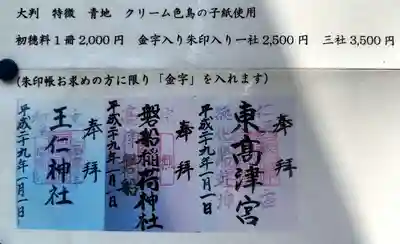 大判　特徴　青地　クリーム色鳥の子紙使用
初穂料１冊2,000円　金字入り朱印入り一社2,500円　三社3,500円
(朱印帳お求めの方に限り「金字」を入れます)
奉拝
東高津宮
平成二十九年一月一日
奉拝
磐船稲荷神社
平成二十九年一月一日
奉拝
王仁神社
平成二十九年一月一日